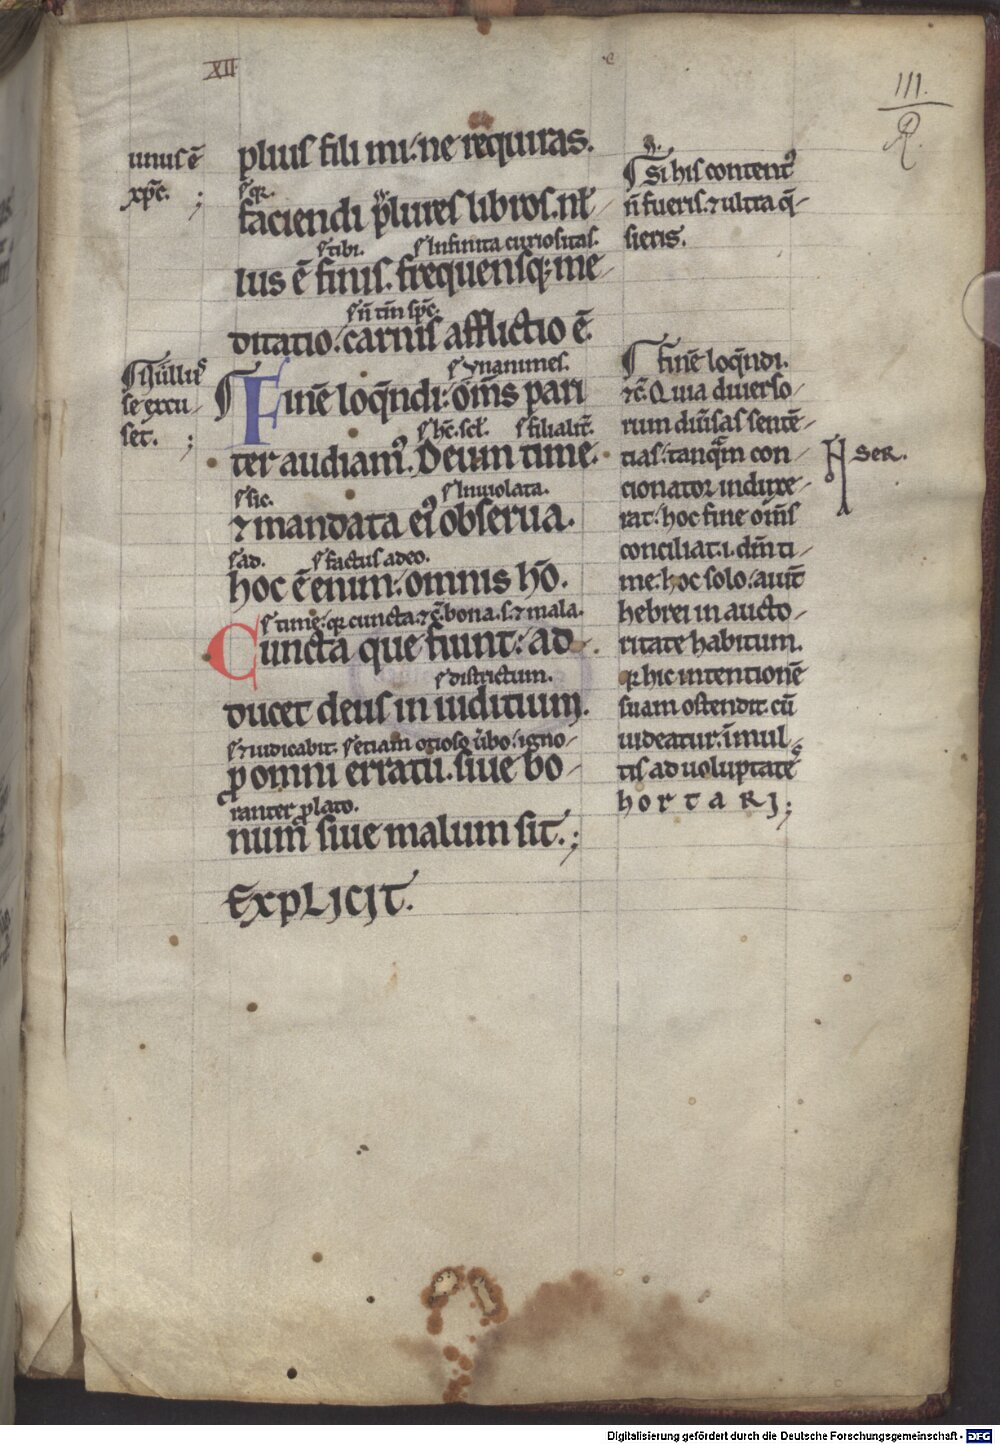 XII
111.
unus ē
xp̄c. ;
plius fili mi: ne requiras.
.s. qr.
faciendi plures libros. nł-
.s. tibi. .s. infinita curiositas.
lus ē finis. frequensq; me-
.s. n̄ tm̄ sp̄c.
ditatio: carnis afflictio ē.
¶ Si his content᾽
n̄ fueris. ⁊ ultra q̄-
sieris.
se excu-
set. ;
.s. ynanimes.
¶ Finē loq̄ndi: om̄s pari
.s. filialit̄.
ter audiam᾽. Deum time.
.s. sic. .s. inuiolata.
⁊ mandata ei᾽ obserua.
.s. ad. .s. factus adeo.
hoc ē enim: omnis hō.
.s. time: qr cuncta. ⁊c̄. bona. s. ⁊ mala.
Cuncta que fiunt: ad-
.s. districtum.
ducet deus in iuditium.
.s. ⁊ iudicabit. .s. etiam otioso ūbo: igno-
p omni erratu. siue bo-
ranter plato.
num siue malum sit. ;
Explicit.
¶ Finē loq̄ndi.
⁊c̄. Quia diuerso-
rum diūsas sentē-
tias: tanq̄m con-
cionator induxe-
rat: hoc fine om̄s
conciliat. i. dm̄ ti-
me: hoc solo: aiūt
hebrei in aucto-
ritate habitum.
qr hic intentionē
suam ostendit. cū
uideatur: ī mul-
tis ad uoluptatē
hortari ;
SER.
Digitalisierung gefördert durch die Deutsche Forschungsgemeinschaft - DFG